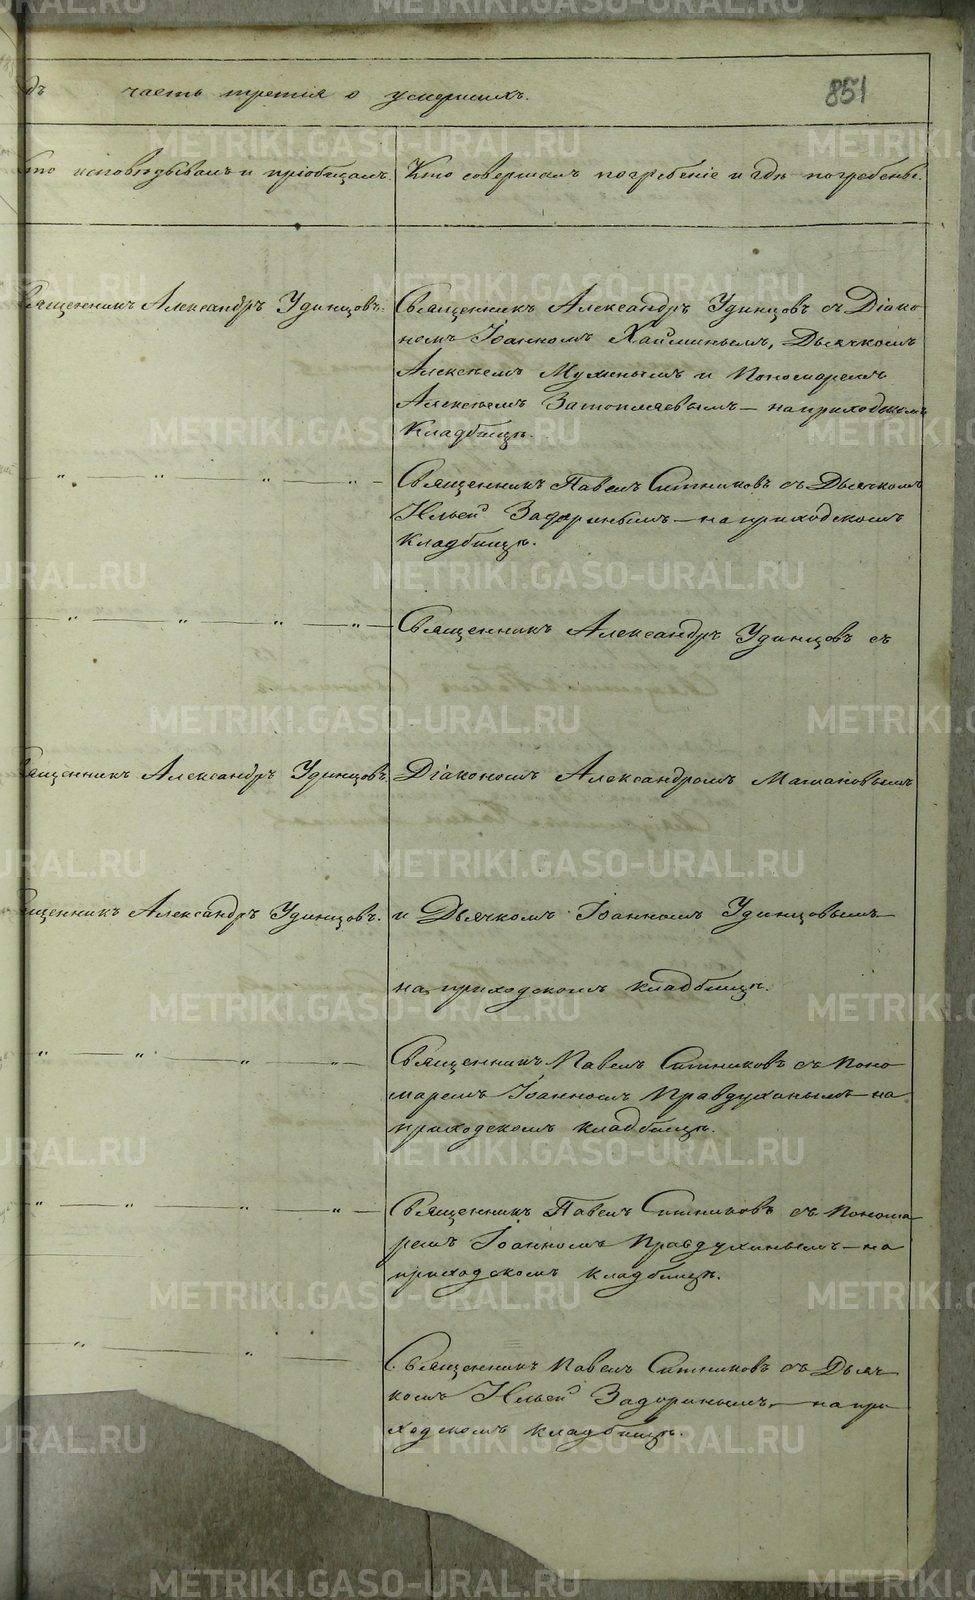 часть третія о умершихъ.
851
исповѣдывалъ и пріобщалъ.
Кто совершалъ погребеніе и гдѣ погребены.
Священникъ Александръ Удинцовъ.
Священникъ Александръ Удинцовъ съ Діако
номъ Іоанномъ Дьячкомъ
Алексѣемъ Мухинымъ и Пономаремъ
Алексѣемъ Затопляевымъ — на приходскомъ
Кладбищѣ.
" " " " —
Священникъ Павелъ Ситниковъ съ Дьячкомъ
Ильей Задоринымъ — на приходскомъ
Кладбищѣ.
— " " " " —
Священникъ Александръ Удинцовъ съ
Священникъ Александръ Удинцовъ.
Діакономъ Александромъ Мамановымъ
Священникъ Александръ Удинцовъ.
и Дьячкомъ Іоанномъ Удинцовымъ —
на приходскомъ кладбищѣ.
" — " — " — " —
Священникъ Павелъ Ситниковъ съ Поно
маремъ Іоанномъ Правдухинымъ — на
приходскомъ кладбищѣ.
" — " — " — " —
Священникъ Павелъ Ситниковъ съ Понома
ремъ Іоанномъ Правдухинымъ — на
приходскомъ кладбищѣ.
" — " —
Священникъ Павелъ Ситниковъ съ Дьяч
комъ Ильей Задоринымъ, — на при
ходскомъ кладбищѣ.
METRIKI.GASO-URAL.RU